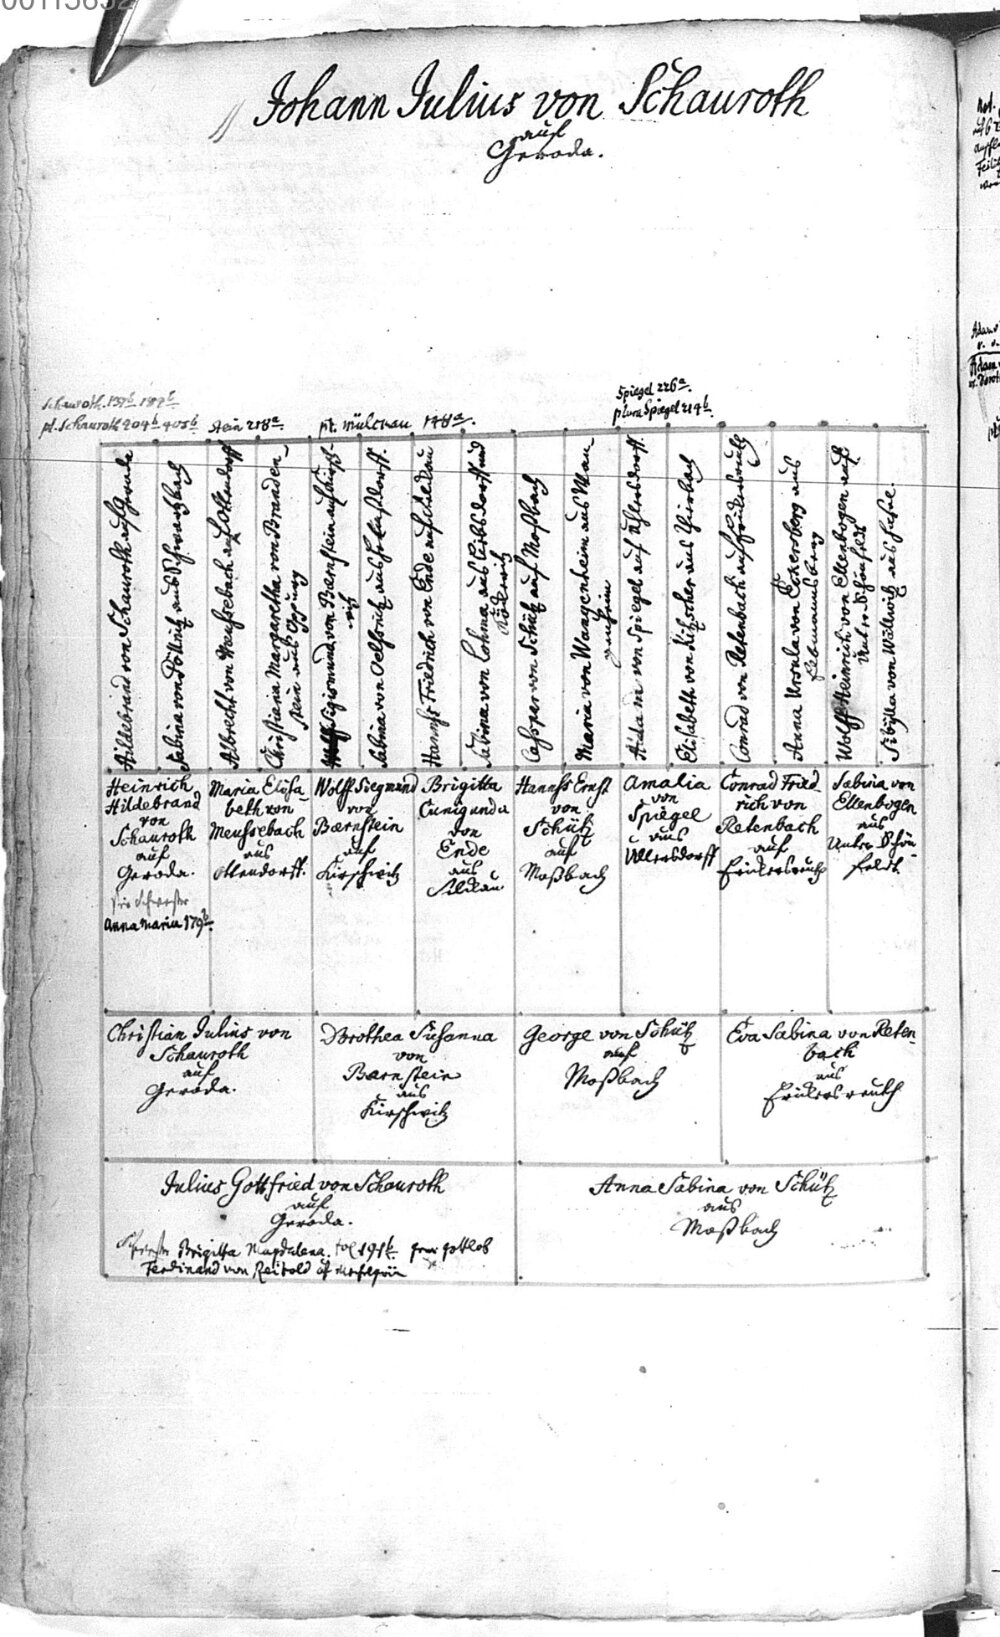 Johann Julius von Schauroth
auf
Geroda.
Schauroth. 137b 189b
pl. Schauroth 204b 405b
Stein 218a
pl. Mülckau 178a
Spiegel 226a
plura Spiegel 214b
Hildebrand von Schauroth auf Geroda
Sabina von Döllnitz aus Schwartzbach
Albrecht von Meussebach auf Ottendorff
Christiana Margaretha von Branden-
stein aus Oppurg
Wolff Sigismund von Bærnstein auf Kirsch-
witz
Sabina von
Hannß Friedrich von Ende auf Selckau
Sabina von Lohma aus
Casper von Schütz auf Moßbach
Maria von Wangenheim aus Wan-
genheim
Adam von Spiegel auf Ullersdorff
Elisabeth von Kitzscher aus
Conrad von Retenbach auf Frickersreuth
Anna Ursula von Eckersberg aus
Wolff Heinrich von Ellenbogen auf
Unter Schönfeld
Sibylla von
Heinrich
Hildebrand
von
Schauroth
auf
Geroda.
die Schwester
Anna Maria 179b.
Maria Elisa-
beth von
Meussebach
aus
Ottendorff.
Wolff Siegmund
von
Bærnstein
auf
Kirschwitz
Brigitta
Cunigunda
von
Ende
aus
Selckau
Hannß Ernst
von
Schütz
auf
Moßbach
Amalia
von
Spiegel
aus
Ullersdorff
Conrad Fried-
rich von
Retenbach
auf
Frickersreuth
Sabina von
Ellenbogen
aus
Unter Schön-
feldt.
Christian Julius von
Schauroth
auf
Geroda.
Dorothea Susanna
von
Bærnstein
aus
Kirschwitz
George von Schütz
auf
Moßbach
Eva Sabina von Reten-
bach
aus
Frickersreuth
Julius Gottfried von Schauroth
auf
Geroda.
Schwester Brigitta Magdalena. fol 191b. Gottlob
Ferdinand von Reitzold
Anna Sabina von Schütz
aus
Moßbach